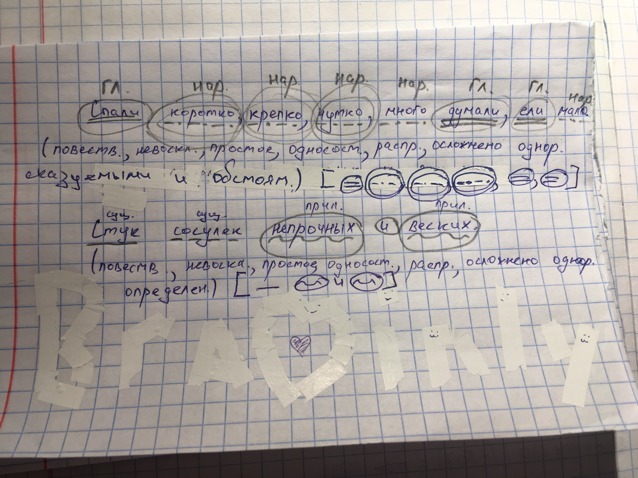 гл. нар. нар. нар. нар. гл. гл. нар.
Спали коротко, крепко, чутко, много думали, ели мало
(повеств., невоскл., простое, односост., распр., осложнено однор.
сказуемыми и обстоят.) [
сущ. сущ. прил. прил.
Стук сосулек непрочных и веских.
(повеств., невоскл., простое, односост., распр., осложнено однор.
определен.) [ и ]
Brainly